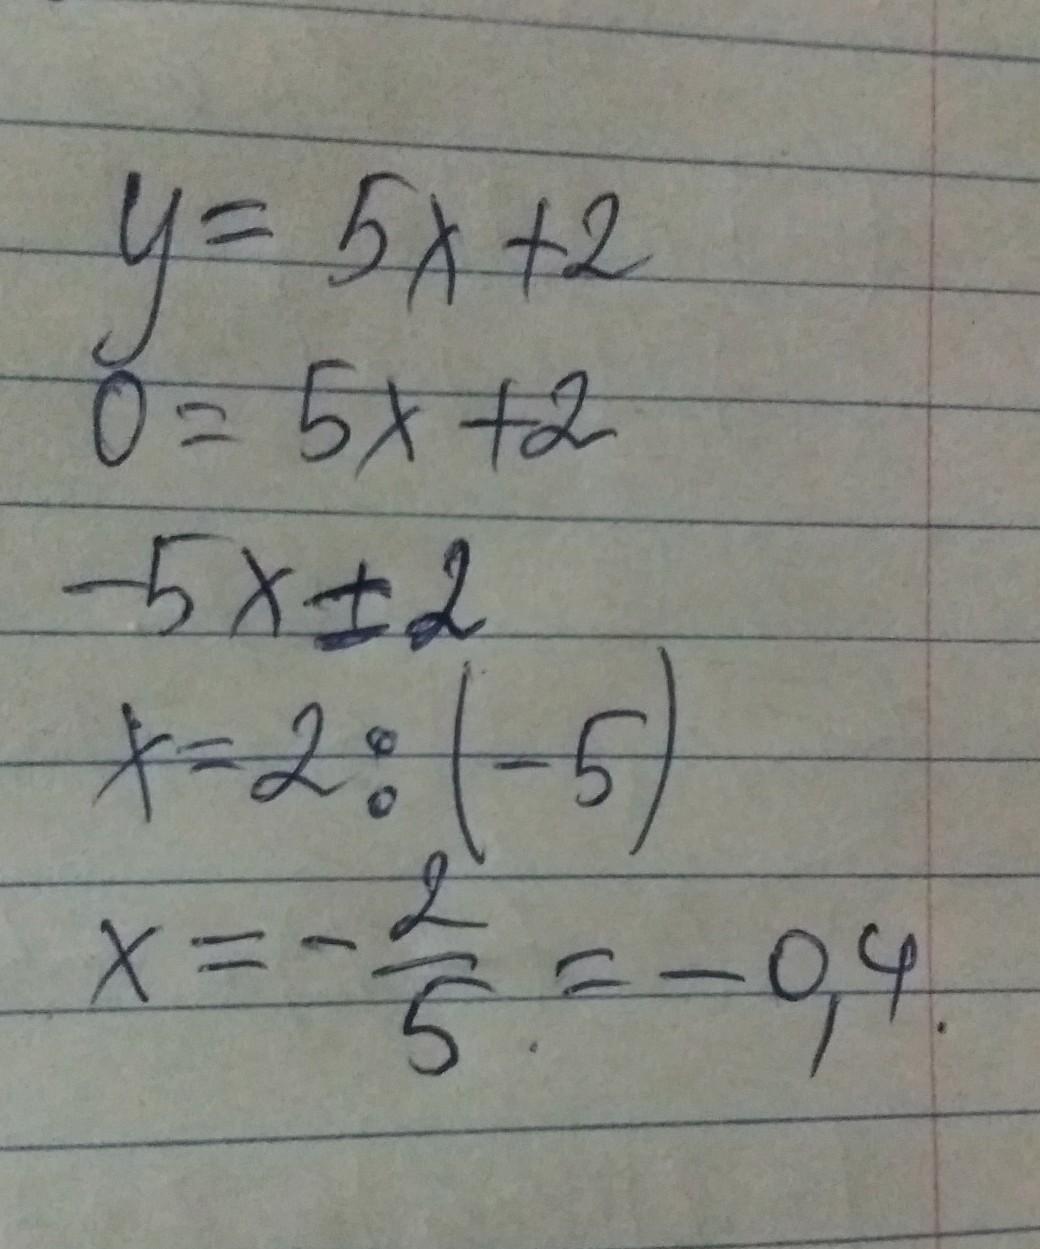 y = 5x + 2
0 = 5x + 2
-5x ± 2
x = 2 : (-5)
x = - 2/5 = - 0,4.